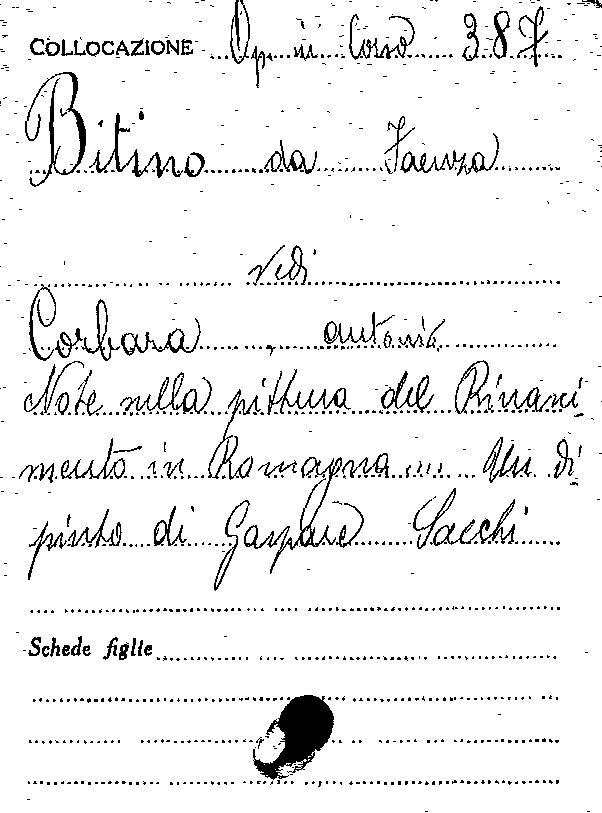 COLLOCAZIONE Op in Corso 387
Bitino da Faenza
Vedi
Corbara, Antonio
Note sulla pittura del Rinasci
mento in Romagna... Un di
pinto di Gaspare Sacchi
Schede figlie